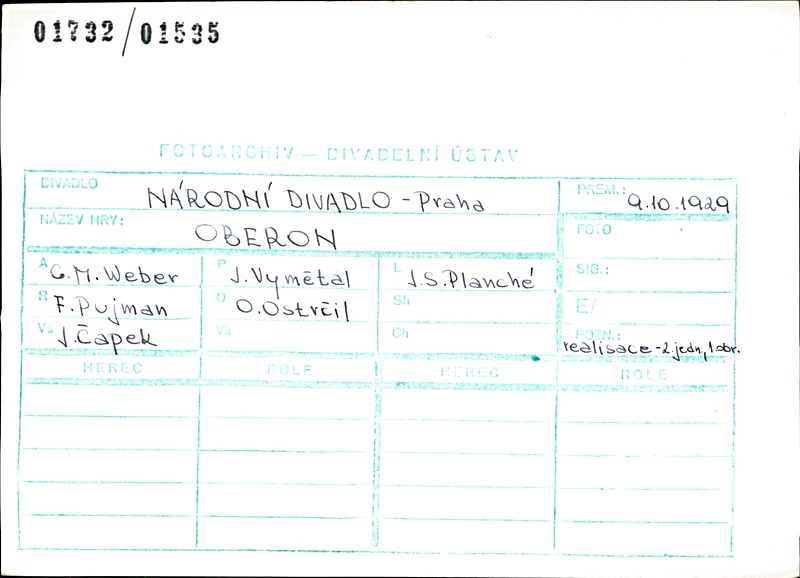 01732/01535
FOTOARCHIV — DIVADELNÍ ÚSTAV
DIVADLO NÁRODNÍ DIVADLO - Praha
PREM.: 9.10.1929
NÁZEV HRY: OBERON
FOTO
A C.M. Weber
P J. Vymětal
L J.S. Planché
SIG.:
R F. Pujman
D O. Ostrčil
Sh
E/
Vs J. Čapek
Vk
Ch
POZN.: realisace - 2. jedn., 1. obr.
HEREC ROLE HEREC ROLE